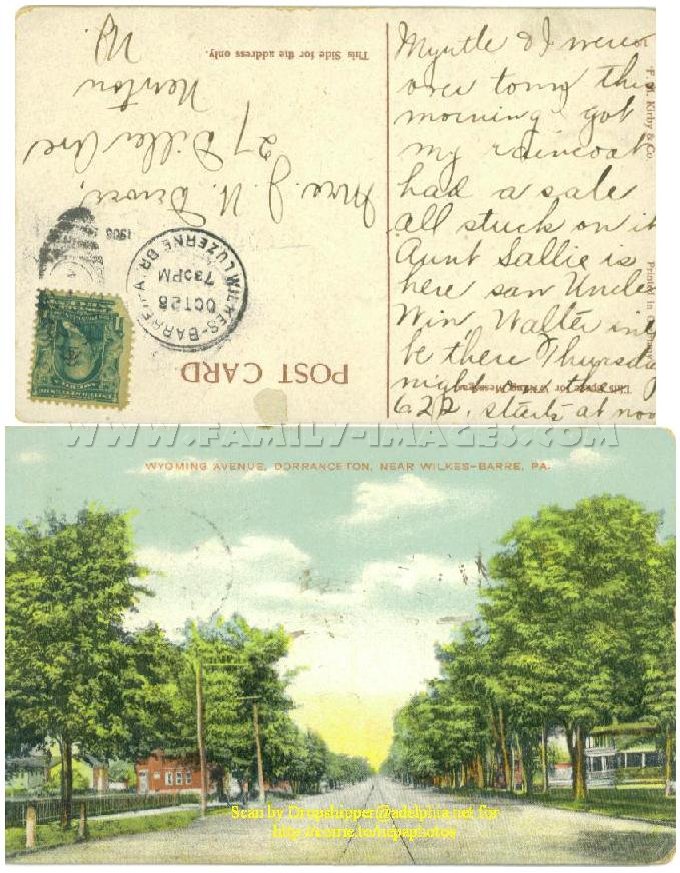 Myrtle & I were
over town this
morning got
my raincoat
had a sale
all stuck on it
Aunt Sallie is
here saw Uncle
Win, Walter
be there Thursda
night on the
622. starts at noo
F. M. Kirby & Co.
Printed in
This Space for Writing Messages
POST CARD
This Side for the address only.
WILKES-BARRE, PA.
LUZERNE BR.
OCT 28
730 PM
1908
Mrs. J. N.
27 Dille Ave
Newton
NJ.
WWW.FAMILY-IMAGES.COM
WYOMING AVENUE, DORRANCETON, NEAR WILKES-BARRE, PA.
Scan by Dropshipper@adelphia.net for
http://corrie.to/nepaphotos